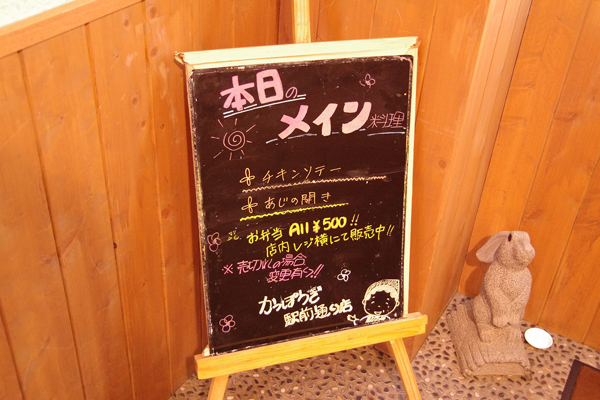 本日の
メイン料理
チキンソテー
あじの開き
お弁当 All ¥500!!
店内レジ横にて販売中!!
※売切れの場合
変更有り!!
かっぽうぎ
駅前通り店